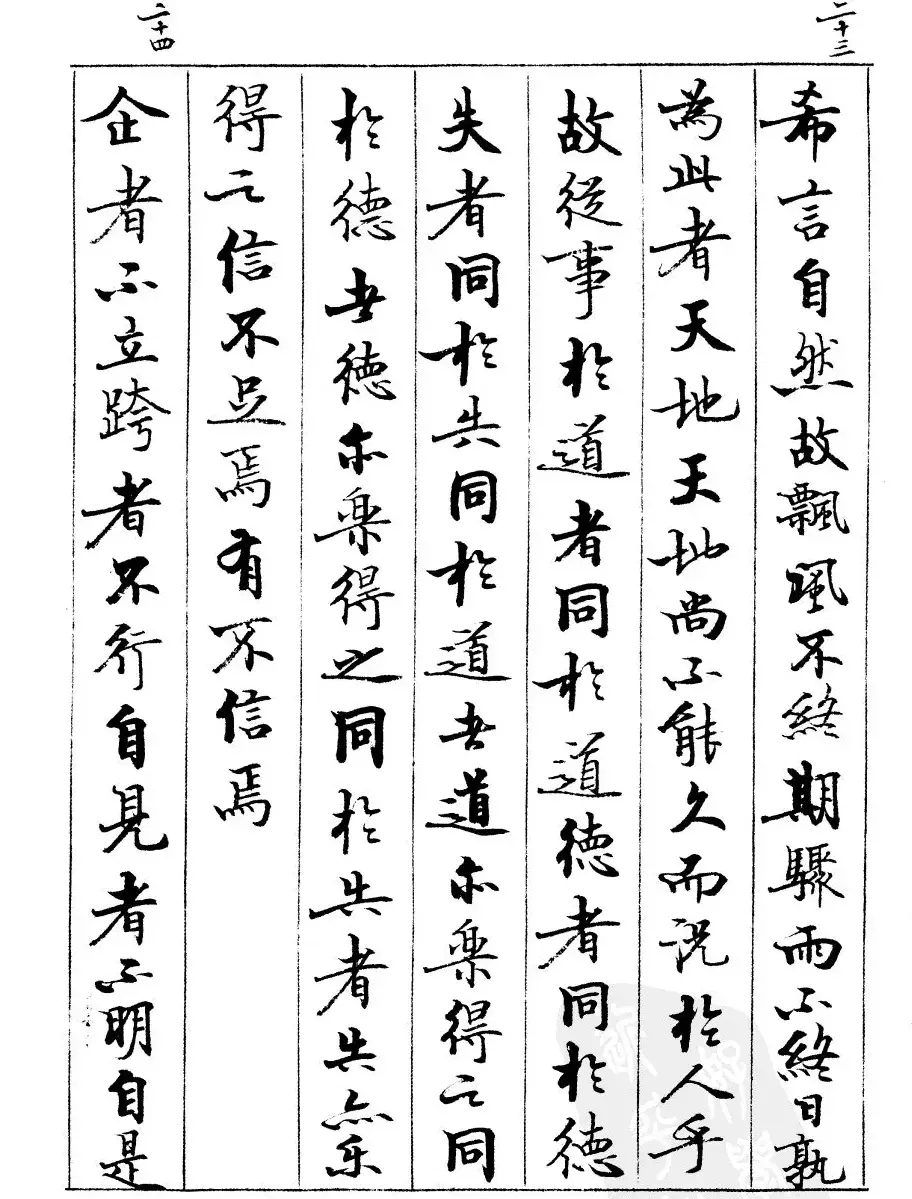 二十三
希言自然故飄風不終期驟雨不終日孰
為此者天地天地尚不能久而況於人乎
故從事於道者同於道德者同於德
失者同於失同於道者道亦樂得之同
於德者德亦樂得之同於失者失亦樂
得之信不足焉有不信焉
二十四
企者不立跨者不行自見者不明自是